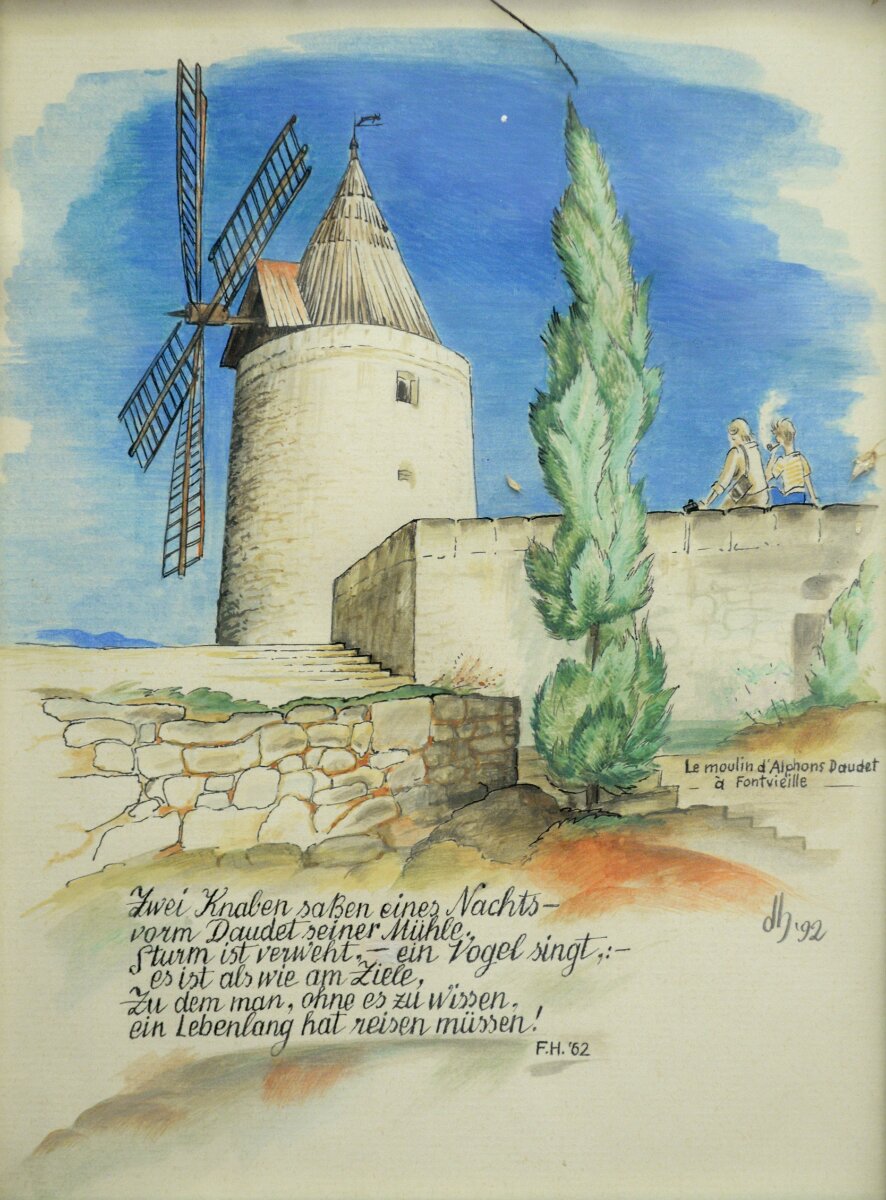 Le moulin d'Alphons Daudet
à Fontvieille
Zwei Knaben saßen eines Nachts –
vorm Daudet seiner Mühle.
Sturm ist verweht, – ein Vogel singt,:–
es ist als wie am Ziele,
Zu dem man, ohne es zu wissen,
ein Lebenlang hat reisen müssen!
F.H. '62
'92